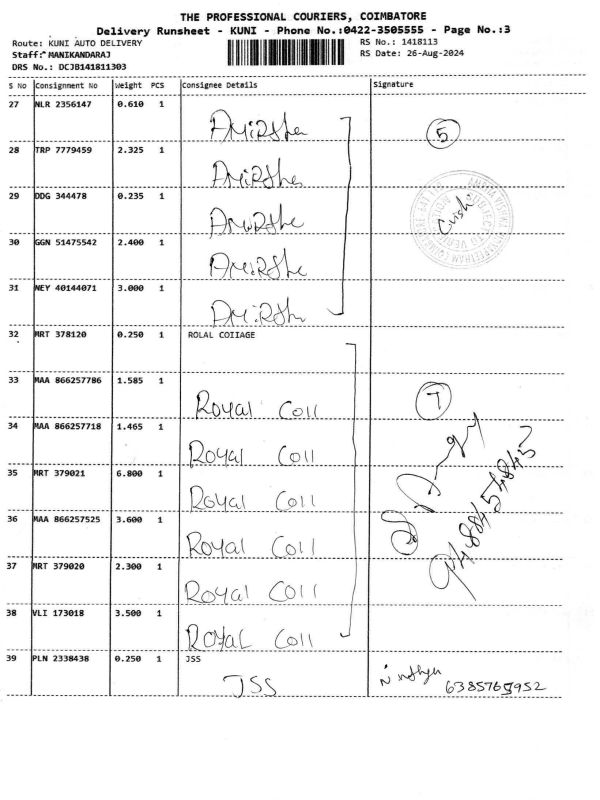 THE PROFESSIONAL COURIERS, COIMBATORE
Delivery Runsheet - KUNI - Phone No.:0422-3505555 - Page No.:3
Route: KUNI AUTO DELIVERY
RS No.: 1418113
Staff: MANIKANDARAJ
RS Date: 26-Aug-2024
DRS No.: DCJB141811303
S No Consignment No Weight PCS Consignee Details Signature
27 NLR 2356147 0.610 1
AMIRSha
5
28 TRP 7779459 2.325 1
AMIRSha
29 DDG 344478 0.235 1
30 GGN 51475542 2.400 1
AMIRSha
31 NEY 40144071 3.000 1
AMIRSha
32 MRT 378120 0.250 1 ROLAL COIIAGE
33 MAA 866257786 1.585 1
Royal Coll
7
34 MAA 866257718 1.465 1
Royal Coll
35 MRT 379021 6.800 1
Royal Coll
36 MAA 866257525 3.600 1
Royal Coll
37 MRT 379020 2.300 1
Royal Coll
38 VLI 173018 3.500 1
ROYAL Coll
39 PLN 2338438 0.250 1 JSS
JSS
6385765952